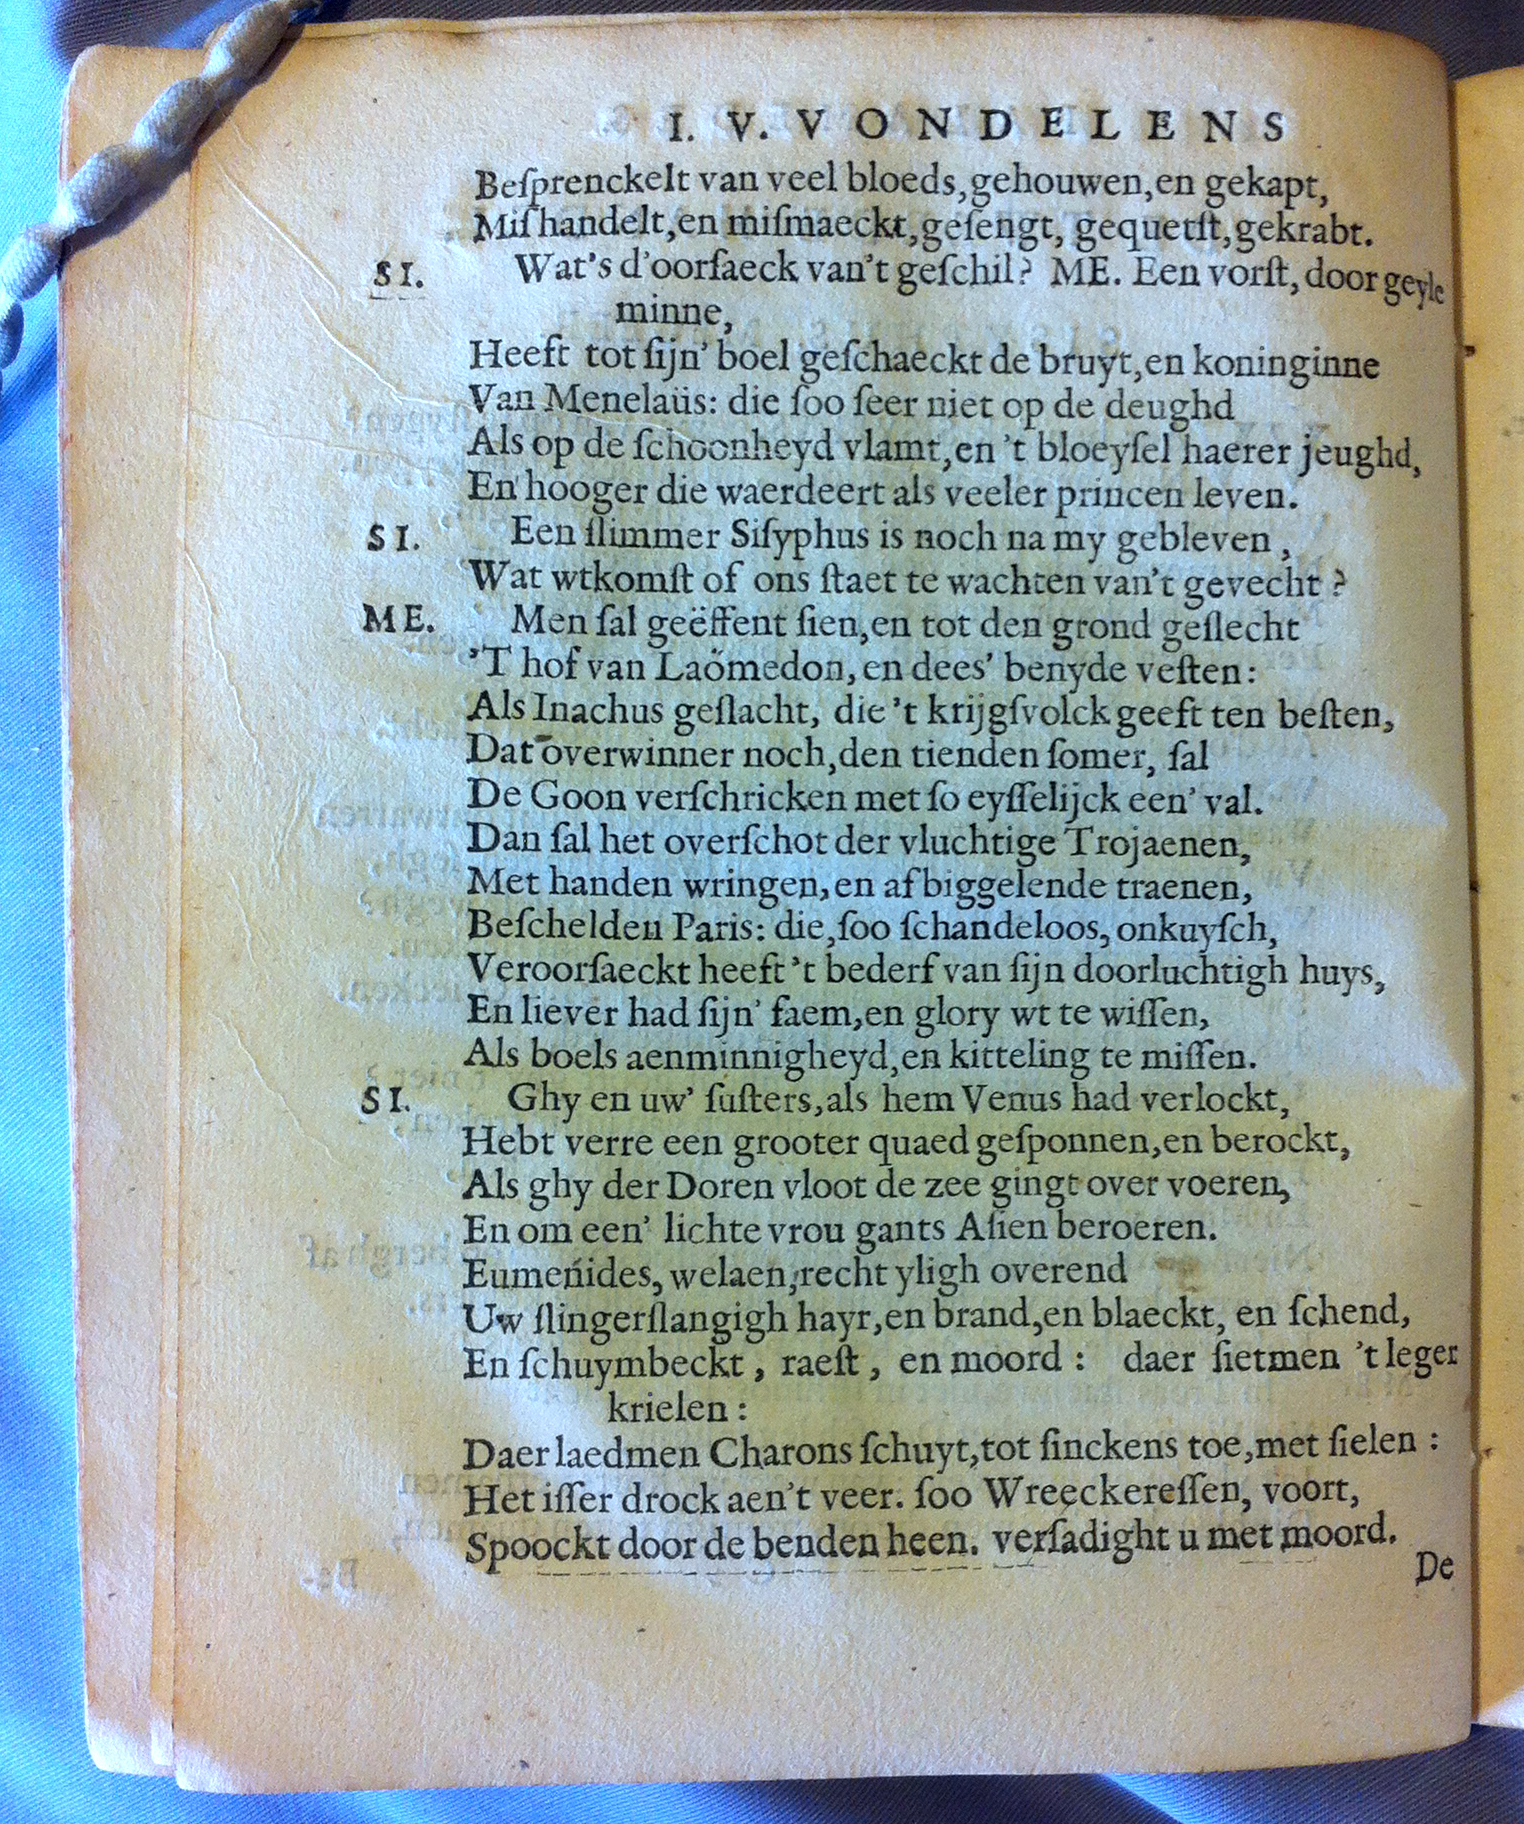 I. V. VONDELENS
Beſprenckelt van veel bloeds, gehouwen, en gekapt,
Miſhandelt, en miſmaeckt, geſengt, gequetſt, gekrabt.
SI. Wat's d'oorſaeck van't geſchil? ME. Een vorſt, door geyle
minne,
Heeft tot ſijn' boel geſchaeckt de bruyt, en koninginne
Van Menelaüs: die ſoo ſeer niet op de deughd
Als op de ſchoonheyd vlamt, en 't bloeyſel haerer jeughd,
En hooger die waerdeert als veeler princen leven.
SI. Een ſlimmer Siſyphus is noch na my gebleven,
Wat wtkomſt of ons ſtaet te wachten van't gevecht?
ME. Men ſal geëffent ſien, en tot den grond geſlecht
'T hof van Laömedon, en dees' benyde veſten:
Als Inachus geſlacht, die 't krijgſvolck geeft ten beſten,
Dat overwinner noch, den tienden ſomer, ſal
De Goon verſchricken met ſo eyſſelijck een' val.
Dan ſal het overſchot der vluchtige Trojaenen,
Met handen wringen, en afbiggelende traenen,
Beſchelden Paris: die, ſoo ſchandeloos, onkuyſch,
Veroorſaeckt heeft 't bederf van ſijn doorluchtigh huys,
En liever had ſijn' faem, en glory wt te wiſſen,
Als boels aenminnigheyd, en kitteling te miſſen.
SI. Ghy en uw' ſuſters, als hem Venus had verlockt,
Hebt verre een grooter quaed geſponnen, en berockt,
Als ghy der Doren vloot de zee gingt over voeren,
En om een' lichte vrou gants Aſien beroeren.
Eumenides, welaen, recht yligh overend
Uw ſlingerſlangigh hayr, en brand, en blaeckt, en ſchend,
En ſchuymbeckt, raeſt, en moord: daer ſietmen 't leger
krielen:
Daer laedmen Charons ſchuyt, tot ſinckens toe, met ſielen:
Het iſſer drock aen't veer. ſoo Wreeckereſſen, voort,
Spoockt door de benden heen. verſadight u met moord.
De